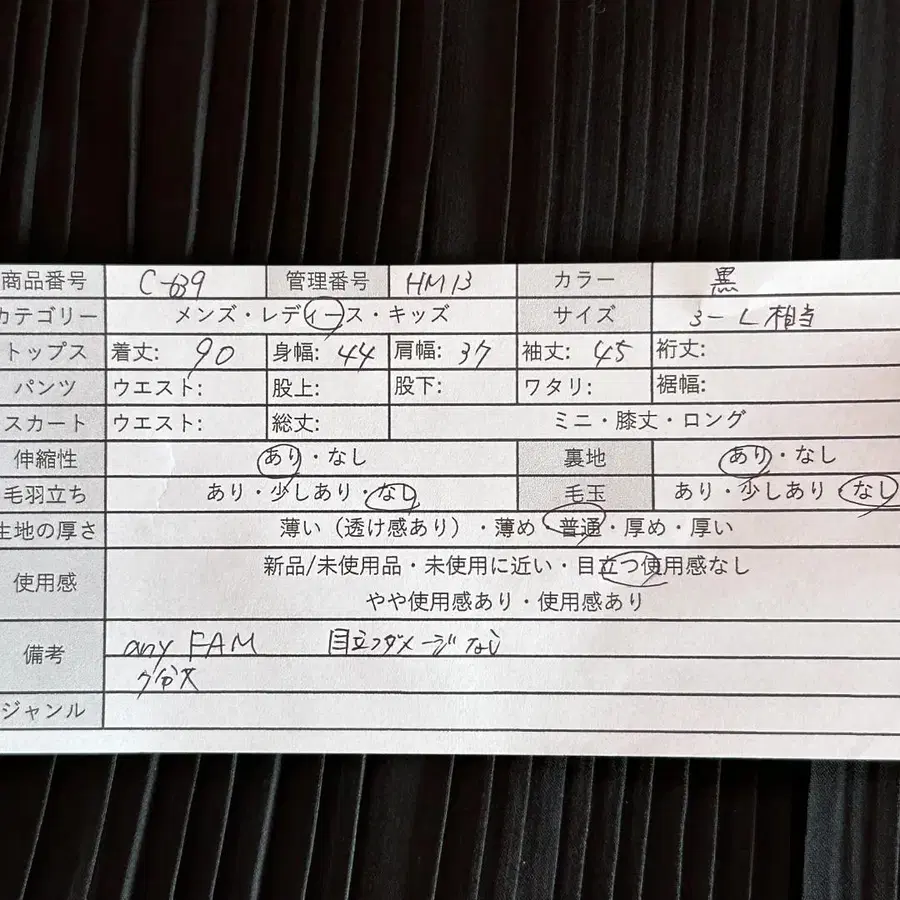 商品番号 C-639 管理番号 HM13 カラー 黒
カテゴリー メンズ・レディース・キッズ サイズ 3-L相当
トップス 着丈: 90 身幅: 44 肩幅: 37 袖丈: 45 裄丈:
パンツ ウエスト: 股上: 股下: ワタリ: 裾幅:
スカート ウエスト: 総丈: ミニ・膝丈・ロング
伸縮性 あり・なし 裏地 あり・なし
毛羽立ち あり・少しあり・なし 毛玉 あり・少しあり・なし
生地の厚さ 薄い（透け感あり）・薄め・普通・厚め・厚い
使用感 新品/未使用品・未使用に近い・目立つ使用感なし
やや使用感あり・使用感あり
備考 any FAM 目立つダメージなし
7分丈
ジャンル